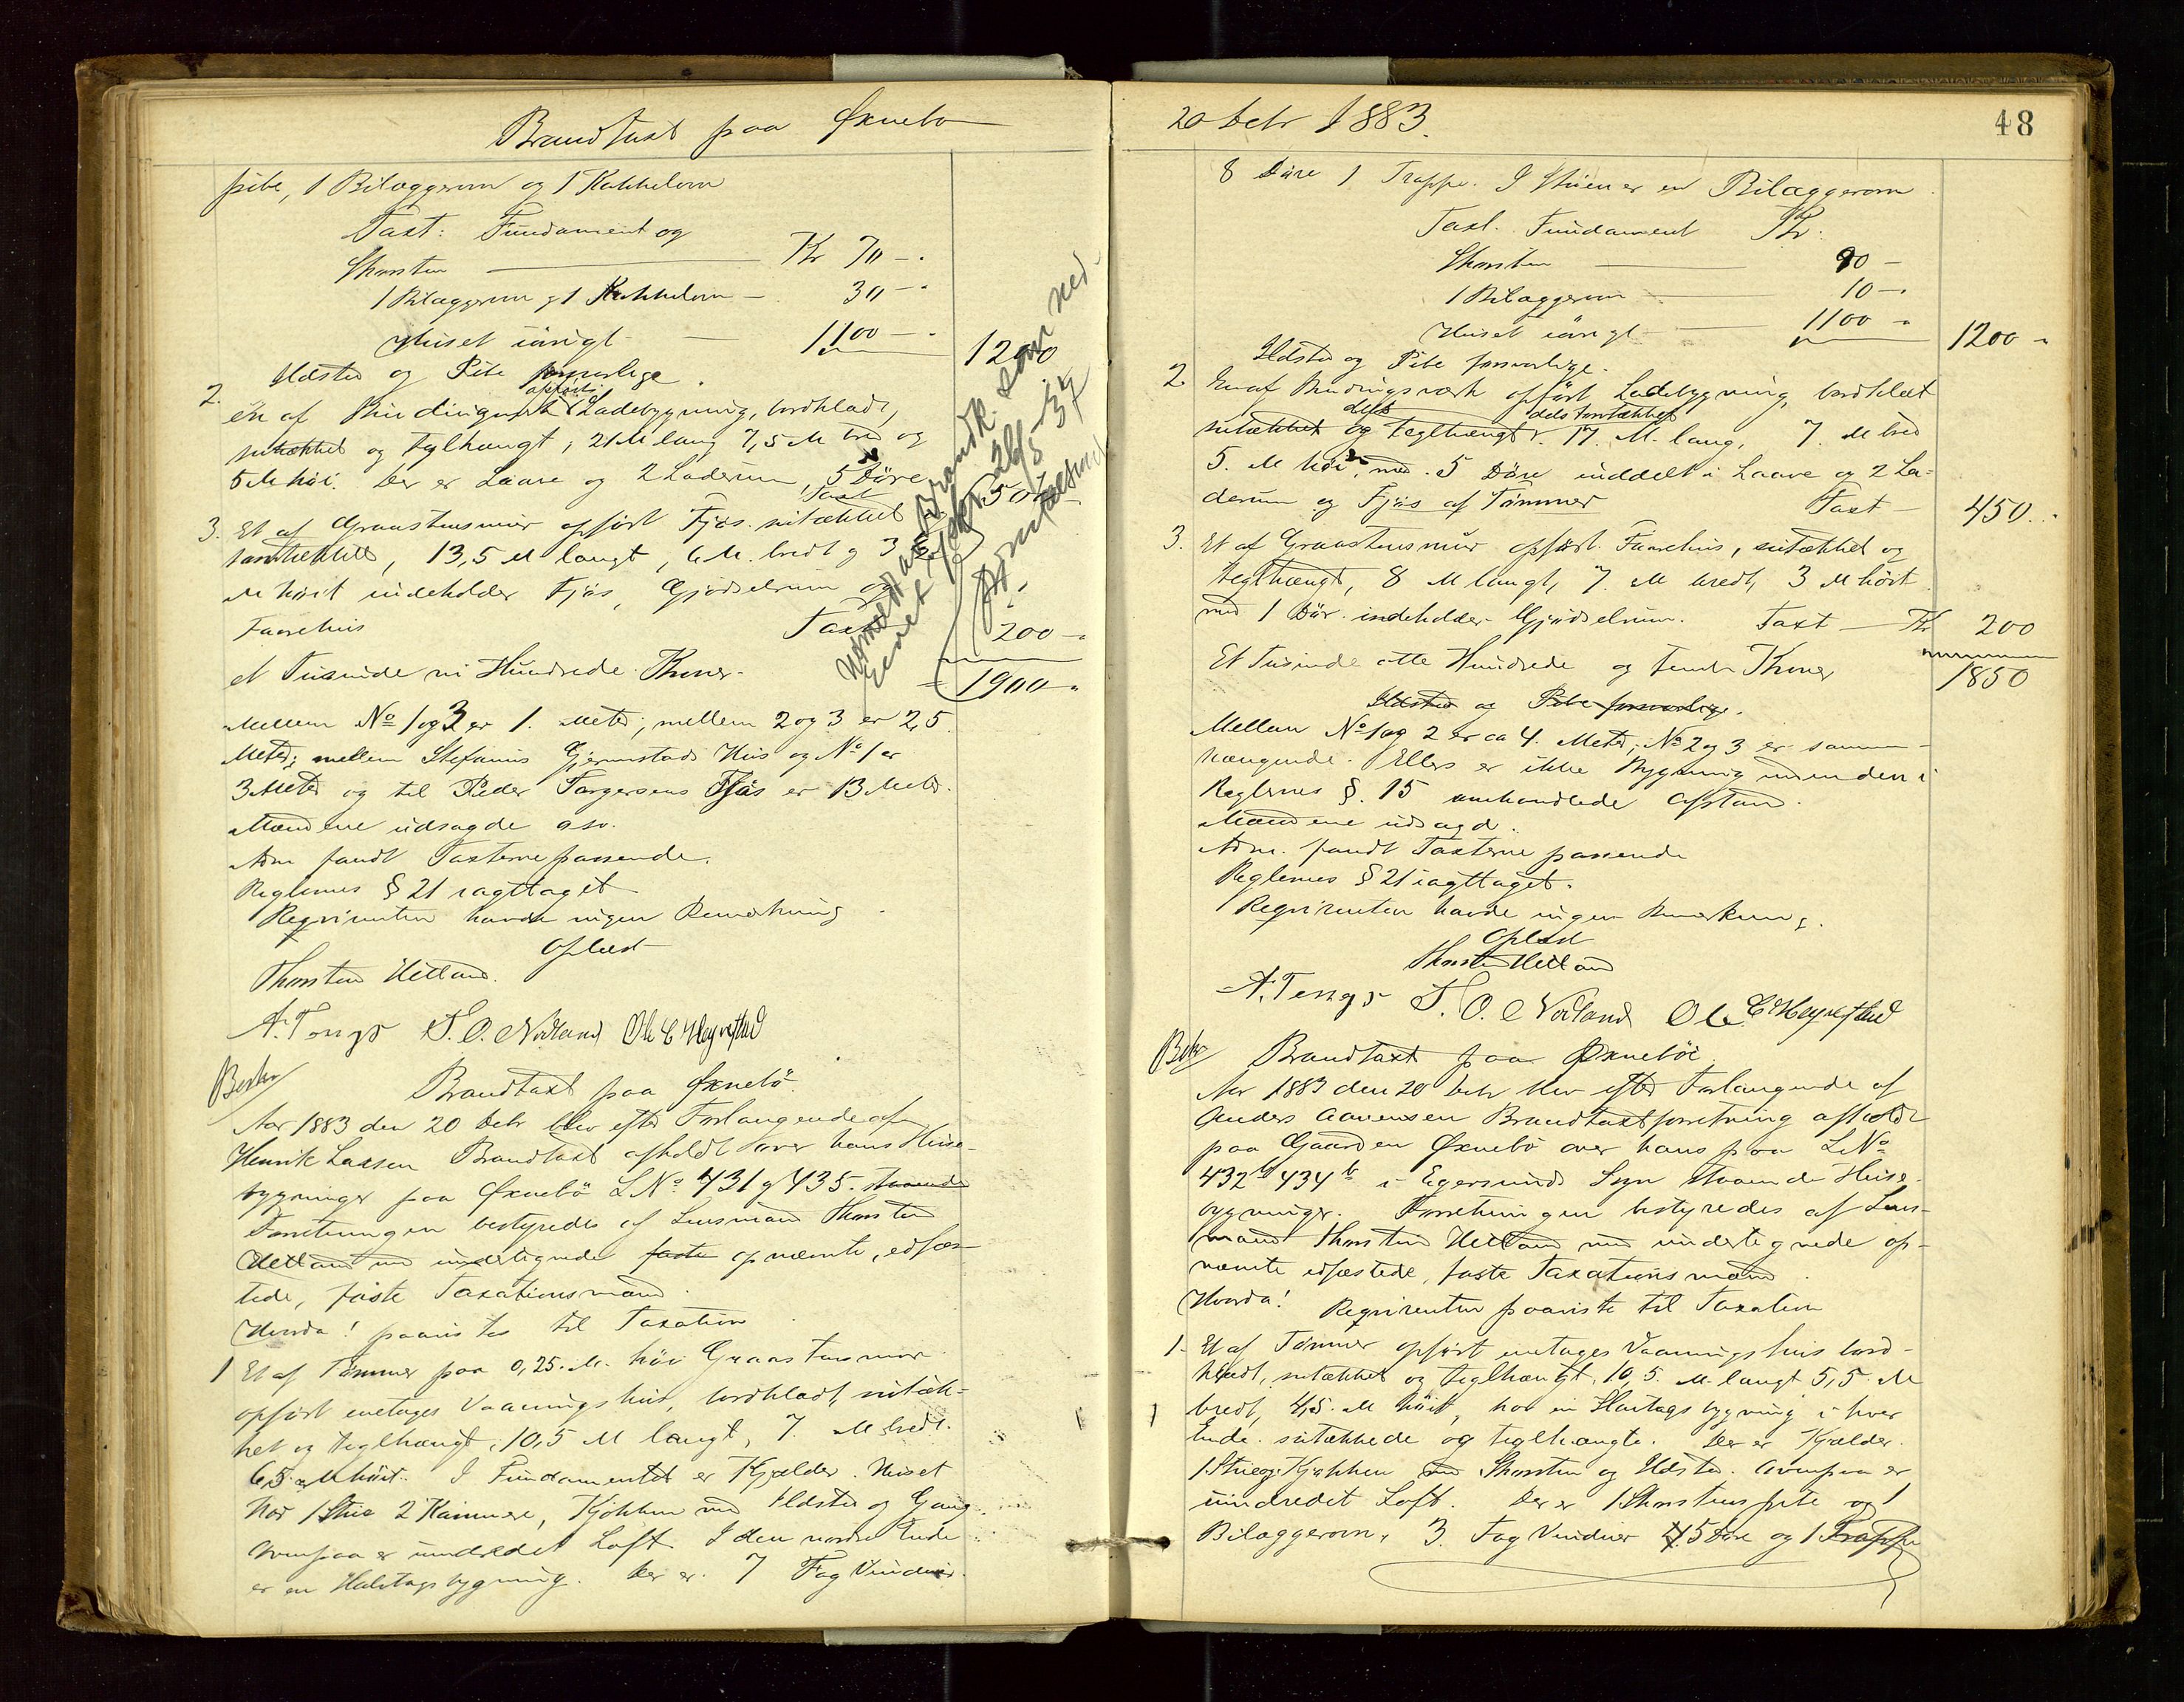 Brandtaxt paa Øxnebø
pibe, 1 Bilæggerovn og 1 Kakkelovn
Taxt: Fundament og
Skorsten Kr 70 -
1 Bilæggerovn og 1 Kakkelovn - 30 -
Huset iøvrigt - 1100 - 1200
Ildsted og Pibe forsvarlige.
2. En af Bindingsværk opført Ladebygning, bordklædt,
nitækket og teglhængt, 21 M lang 7,5 M bred og
5 M høi. Der er Laave og 2 Laderum, 5 Døre
Taxt 500 -
3. Et af Graastensmur opført Fjøs nitækket
torvtækket, 13,5 M langt, 6 M. bredt og 3
M høit indeholder Fjøs, Gjødselrum og
Faarehus Taxt 200 -
et Tusinde ni Hundrede Kroner - = 1900 -
Udmeldt af Brandk. som ned-
Eiendomsbesk.
Mellem No 1 og 3 er 1. Meter; mellem 2 og 3 er 2,5
Meter; mellem Stefanus Gjermstads Hus og No 1 er
3 Meter og til Peder Torgersens Fjøs er 13 Meter.
Mændene udsagde osv.
Adm fandt Taxterne passende.
Reglernes § 21 iagttaget
Reqvirenten havde ingen Bemerkning.
Oplæst
Thorsten Hetland.
A. Tengs S. O. Nodland Ole E Høgnestad
Beskr
Brandtaxt paa Øxnebø.
Aar 1883 den 20 Debr blev efter Forlangende af
Henrik Laxsen Brandtaxt afholdt over hans Huse-
bygninger paa Øxnebø L No 431 og 435. staaende
Forretningen bestyredes af Lensmand Thorsten
Hetland med undertegnede faste opnævnte, edfæs-
tede, faste Taxationsmænd.
Hvorda! paavistes til Taxation
1 Et af Tømmer paa 0,25. M. høi Graastensmur
opført enetages Vaaningshus, bordklædt, nitæk-
ket og teglhængt, 10,5 M langt, 7 M bredt
6,5 M høit. I Fundamentet er Kjælder. Huset
har 1 Stue 2 Kammere, Kjøkken med Ildsted og Gang.
Ovenpaa er uindredet Loft. I den nordre Ende
er en Halvtagsbygning. Der er 7 Fag Vinduer.
20 Debr 1883.
48
8 Døre 1 Trappe. I Stuen er en Bilæggerovn
Taxt. Fundament Kr.
Skorsten 90 -
1 Bilæggerovn 10 -
Huset iøvrigt 1100 - 1200 -
Ildsted og Pibe forsvarlige.
2. En af Bindingsværk opført Ladebygning, bordklædt
nitækket og dels teglhængt dels torvtækket. 17. M. lang, 7. M bred
5. M høi, med 5 Døre inddelt i Laave og 2 La-
derum og Fjøs af Tømmer Taxt - 450.
3. Et af Graastensmur opført Faarehus, nitækket og
teglhængt, 8 M langt, 7. M bredt, 3 M høit
med 1 Dør indeholder Gjødselrum. Taxt - Kr 200
Et Tusinde otte Hundrede og femti Kroner 1850
Ildsted og Pibe forsvarlige.
Mellem No 1 og 2 er ca 4. Meter, No 2 og 3 er sammen-
hængende. Ellers er ikke Bygning indenden i
Reglernes §. 15 omhandlede Afstand.
Mændene udsagd.
Adm. fandt Taxterne passende
Reglernes § 21 iagttaget.
Reqvirenten havde ingen Bemerkning.
Oplæst
Thorsten Hetland
A. Tengs S. O. Nodland Ole E Høgnestad
Beskr
Brandtaxt paa Øxnebøe.
Aar 1883 den 20 Debr blev efter Forlangende af
Anders Aanensen Brandtaxtforretning afholdt
paa Gaarden Øxnebø over hans paa L No
432b 434b i Egersunds Sogn staaende Huse-
bygninger. Forretningen bestyredes af Lens-
mand Thorsten Hetland med undertegnede op-
nævnte edfæstede, faste Taxationsmænd.
Hvorda! Reqvirenten paaviste til Taxation
1. Et af Tømmer opført enetages Vaaningshus bord-
klædt, nitækket og teglhængt, 10,5. M. langt 5,5. M
bredt, 4,5. M høit, har en Halvtagsbygning i hver
Ende. nitækkede og teglhængte. Der er Kjælder.
1 Stue og Kjøkken med Skorsten og Ildsted. Ovenpaa er
uindredet Loft. Der er 1 Skorstenspibe og 1
Bilæggerovn, 3. Fag Vinduer 5 Døre og 1 Trappe